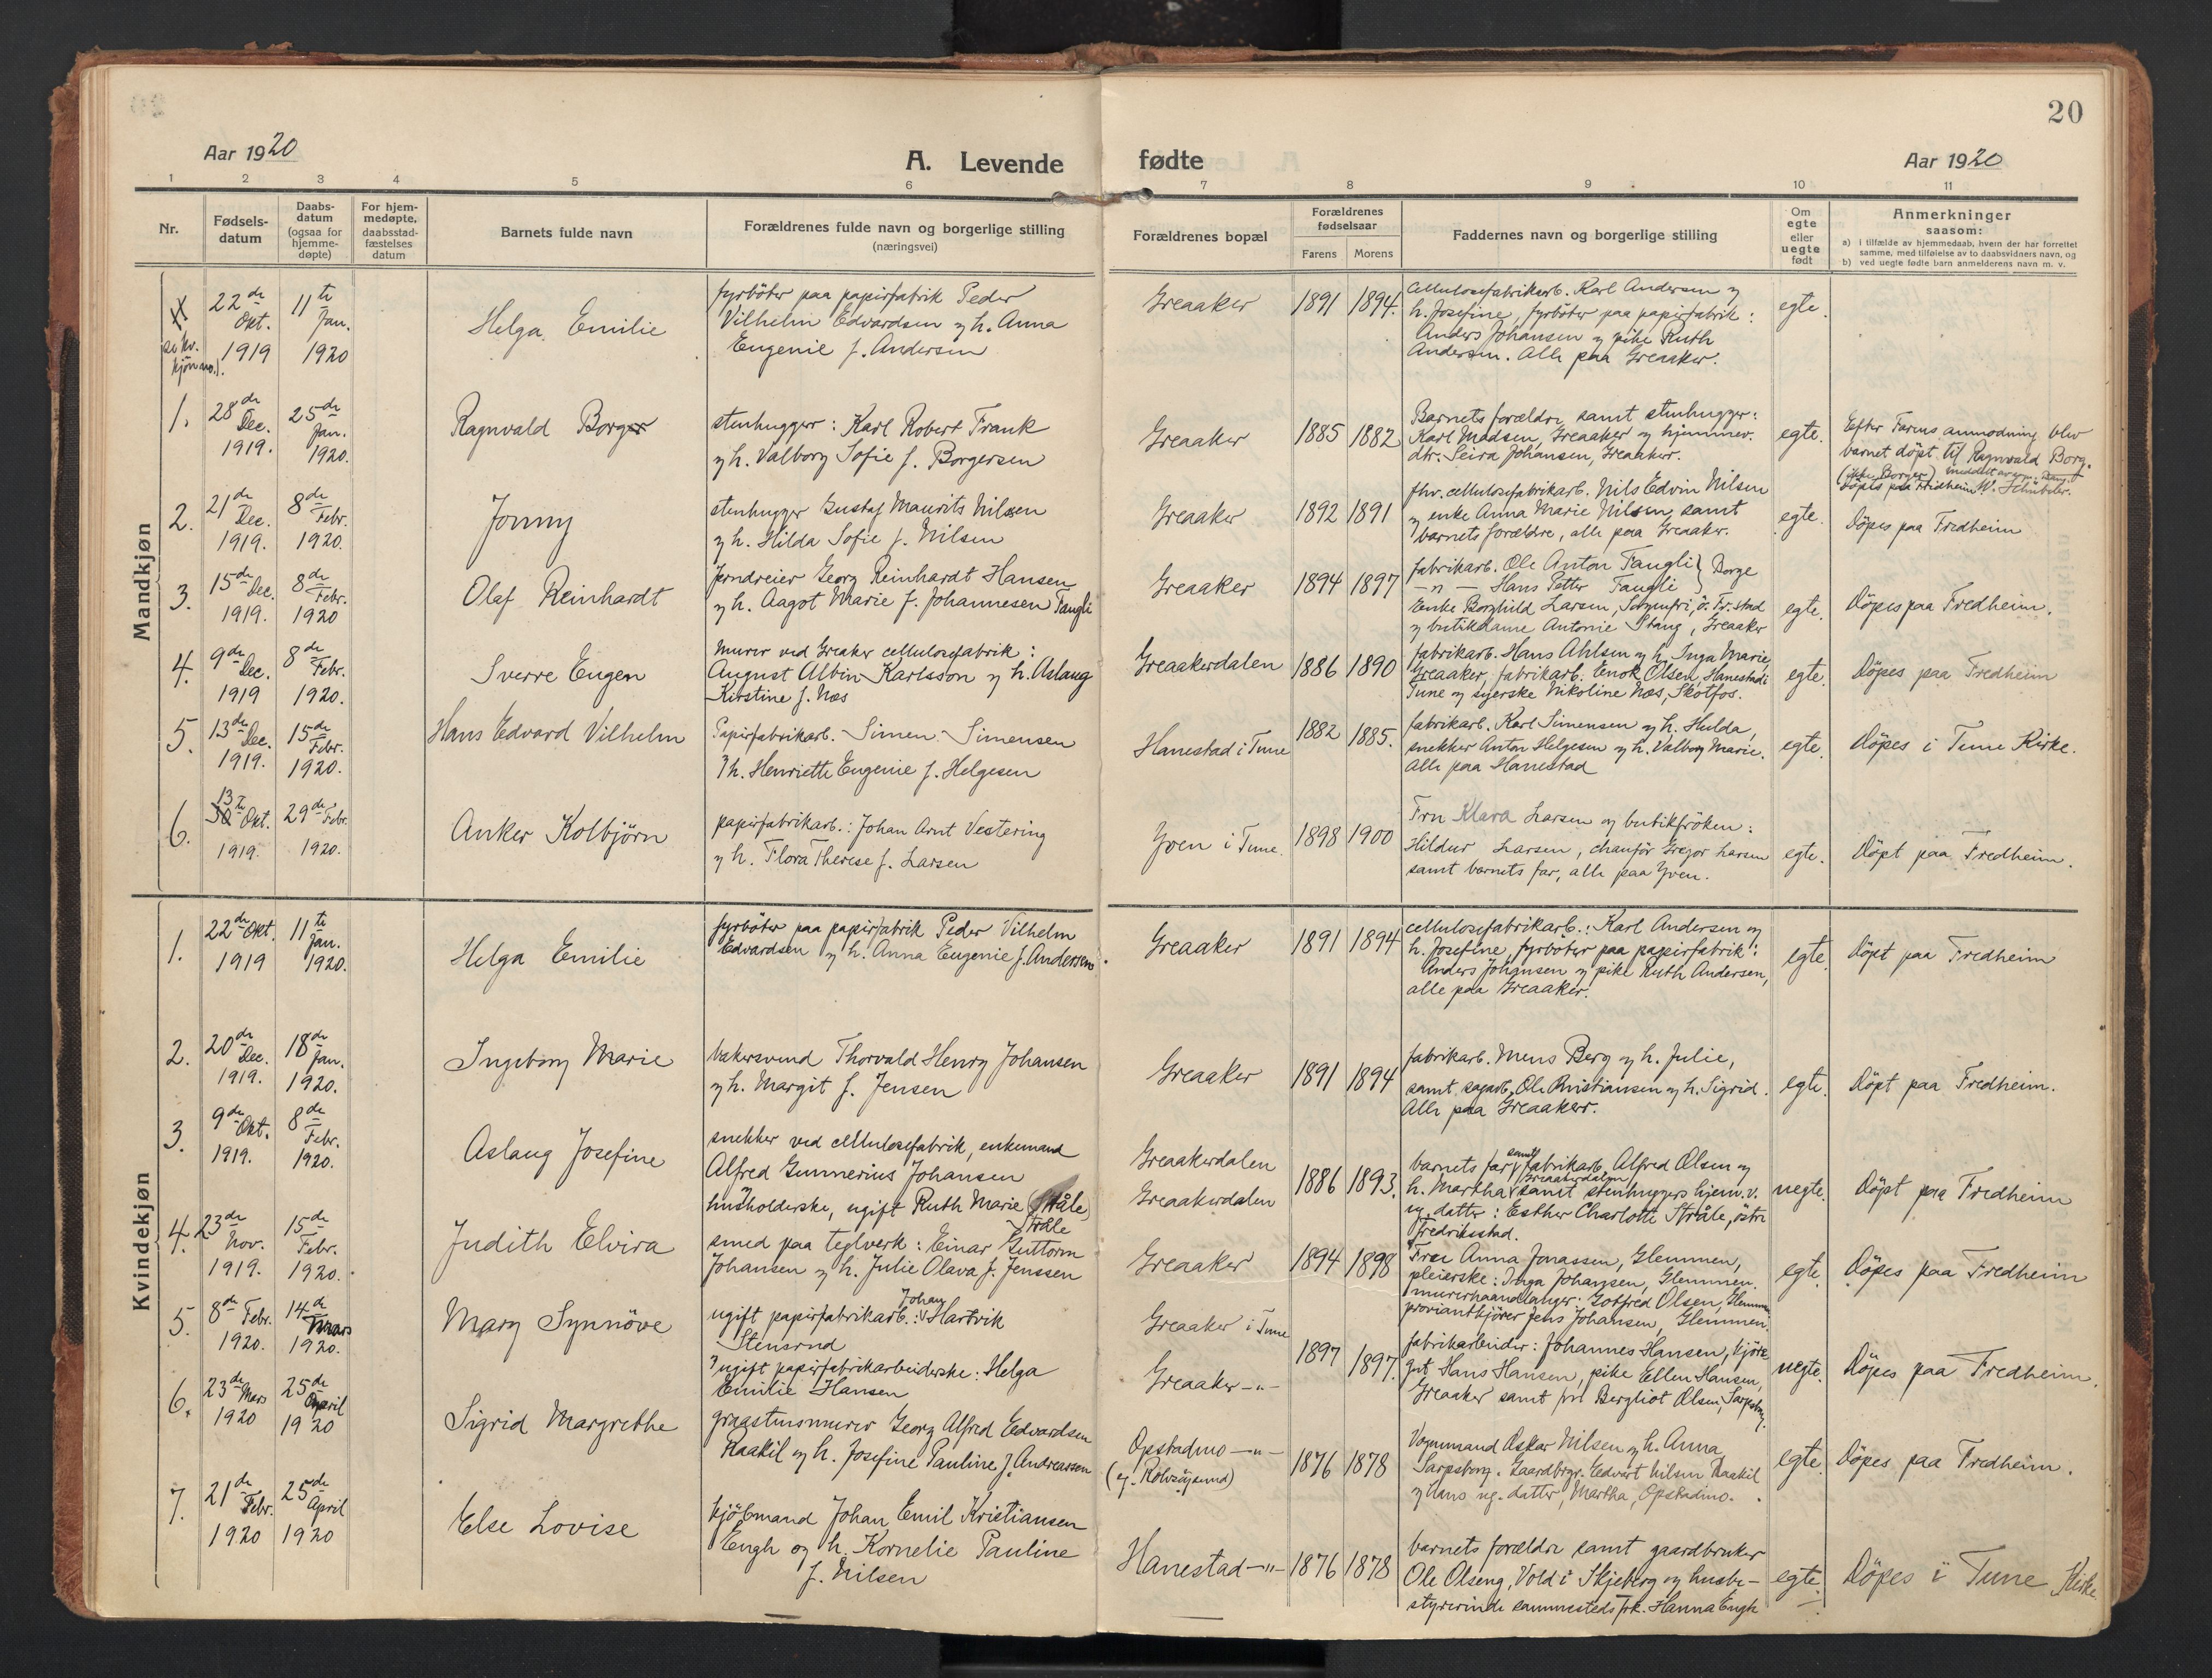 20
Aar 1920
A. Levende fødte
Aar 1920
1 2 3 4 5 6 7 8 9 10 11
Nr.
Fødsels-
datum
Daabs-
datum
(ogsaa for
hjemme-
døpte)
For hjem-
medøpte,
daabsstad-
fæstelses
datum
Barnets fulde navn
Forældrenes fulde navn og borgerlige stilling
(næringsvei)
Forældrenes bopæl
Forældrenes
fødselsaar
Farens Morens
Faddernes navn og borgerlige stilling
Om
egte
eller
uegte
født
Anmerkninger
saasom:
a) i tilfælde av hjemmedaab, hvem der har forrettet
samme, med tilføielse av to daabsvidners navn, og
b) ved uegte fødte barn anmelderens navn m. v.
Mandkjøn
se kv.
kjøn no. 1.
22de Okt. 1919
11te Jan. 1920
Helga Emilie
fyrböter paa papirfabrik Peder
Vilhelm Edvardsen og h. Anna
Eugenie f. Andersen
Greaaker
1891 1894.
Cellulosefabrikarb. Karl Andersen og
h. Josefine, fyrböter paa papirfabrik:
Anders Johansen og pike Ruth
Andersen. Alle paa Greaaker.
egte.
1.
28de Dec. 1919.
25de Jan. 1920.
Ragnvald Borger
stenhugger: Karl Robert Frank
og h. Valborg Sofie f. Borgersen
Greaaker
1885 1882
Barnets forældre samt stenhugger:
Karl Madsen, Greaaker og hjemmev.
dtr. Seira Johansen, Greaaker.
egte.
Efter Farens anmodning blev
barnet döpt til Ragnvald Borg.
(ikke Borger) meddelt av
Döpts paa Fredheim W. Schübeler.
2.
21de Dec. 1919.
8de Febr. 1920.
Jonny
stenhugger Gustaf Maurits Nilsen
og h. Hilda Sofie f. Nilsen
Greaaker
1892 1891
fhv. cellulosefabrikarb. Nils Edvin Nilsen
og enke Anna Marie Nilsen, samt
barnets forældre, alle paa Greaaker.
egte.
Döpes paa Fredheim
3.
15de Dec. 1919.
8de Febr. 1920
Olaf Reinhardt
Jerndreier Georg Reinhardt Hansen
og h. Aagot Marie f. Johannesen Taugli
Greaaker
1894 1897
fabrikarb. Ole Anton Taugli } Borge
— " — Hans Petter Taugli
Enke Borghild Larsen, Sorgenfri, ö. Fr.stad
og butikdame Antonie Stang, Greaaker
egte.
Döpes paa Fredheim.
4.
9de Dec. 1919
8de Febr. 1920.
Sverre Eugen
Murer ved Greaker cellulosefabrik:
August Albin Karlsson og h. Aslaug
Kirstine f. Næs
Greaakerdalen
1886 1890
fabrikarb. Hans Ahlsen og h. Inga Marie,
Greaaker, fabrikarb. Enok Olsen, Hanestad i
Tune og syerske Nikoline Næs, Skotfos.
egte.
Döpes paa Fredheim
5.
13de Dec. 1919.
15de Febr. 1920.
Hans Edvard Vilhelm
Papirfabrikarb. Simen Simensen
og h. Henriette Eugenie f. Helgesen
Hanestad i Tune
1882 1885.
fabrikarb. Karl Simensen og h. Hulda,
snekker Anton Helgesen og h. Valborg Marie.
Alle paa Hanestad
egte.
Döpes i Tune Kirke.
6.
13te 30 Okt. 1919.
29de Febr. 1920.
Anker Kolbjörn
papirfabrikarb.: Johan Arnt Vestering
og h. Flora Therese f. Larsen
Yven i Tune.
1898 1900
Fru Klara Larsen og butikfröken:
Hildur Larsen, chauför Gregor Larsen
samt barnets far, alle paa Yven.
egte.
Döpt paa Fredheim.
Kvindekjøn
1.
22de Okt. 1919
11te Jan. 1920.
Helga Emilie
fyrböter paa papirfabrik Peder Vilhelm
Edvardsen og h. Anna Eugenie f. Andersen.
Greaaker
1891 1894
cellulosefabrikarb.: Karl Andersen og
h. Josefine, fyrböter paa papirfabrik:
Anders Johansen og pike Ruth Andersen,
alle paa Greaaker.
egte.
Döpt paa Fredheim
2.
20de Dec. 1919.
18de Jan. 1920.
Ingeborg Marie
bakersvend Thorvald Henry Johansen
og h. Margit f. Jensen
Greaaker
1891 1894
fabrikarb. Mens Berg og h. Julie,
samt sagarb. Ole Kristiansen og h. Sigrid.
Alle paa Greaaker.
egte.
Döpt paa Fredheim.
3.
9de Okt. 1919.
8de Febr. 1920.
Aslaug Josefine
snekker ved cellulosefabrik, enkemand
Alfred Gunnerius Johansen
og husholderske, ugift Ruth Marie (Stråle)
Stråle
Greaakerdalen
Greaakerdalen
1886 1893.
barnets far samt fabrikarb. Alfred Olsen og
h. Martha Greaakerdalen samt stenhuggers hjem.v.
ug. datter: Esther Charlotte Stråle, östre
Fredriksstad.
uegte.
Döpt paa Fredheim
4.
23de Nov. 1919.
15de Febr. 1920.
Judith Elvira
smed paa teglverk: Einar Guttorm
Johansen og h. Julie Olava f. Jenssen
Greaaker
1894 1898
Frøe Anna Jonassen, Glemmen,
pleierske: Inga Johansen, Glemmen.
murerhaandlanger: Gotfred Olsen, Glemmen
proviantkjörer Jens Johansen, Glemmen.
egte.
Döpes paa Fredheim
5.
8de Febr. 1920.
14de Mars 1920.
Mary Synnöve
ugift papirfabrikarb.: Johan Hartvik
Stensrud
og ugift papirfabrikarbeiderske: Helga
Emilie Hansen
Greaaker i Tune
Greaaker —"—
1897 1897.
fabrikarbeider: Johannes Hansen, kjöre-
gut Hans Hansen, pike Ellen Hansen,
Greaaker samt frk Bergliot Olsen, Sarpsborg.
uegte.
Döpes paa Fredheim.
6.
23de Mars 1920
25de April 1920
Sigrid Margrethe
graastensmurer Georg Alfred Edvardsen
Raakil og h. Josefine Pauline f. Andreassen
Opstadmo —"—
(ej. Rolvsöysund)
1876 1878
Vognmand Oskar Nilsen og h. Anna
Sarpsborg. Gaardbrgr. Edvart Nilsen Raakil
og hans ug. datter, Martha, Opstadmo.
egte.
Döpes paa Fredheim.
7.
21de Febr. 1920
25de April 1920
Else Lovise
kjöbmand Johan Emil Kristiansen
Engh og h. Kornelie Pauline
f. Nilsen
Hanestad —"—
1876 1878
barnets forældre samt gaardbruker
Ole Olseng, Vold i Skjeberg og husbe-
styrerinde sammesteds frk. Hanna Engh
egte.
Döpes i Tune Kirke